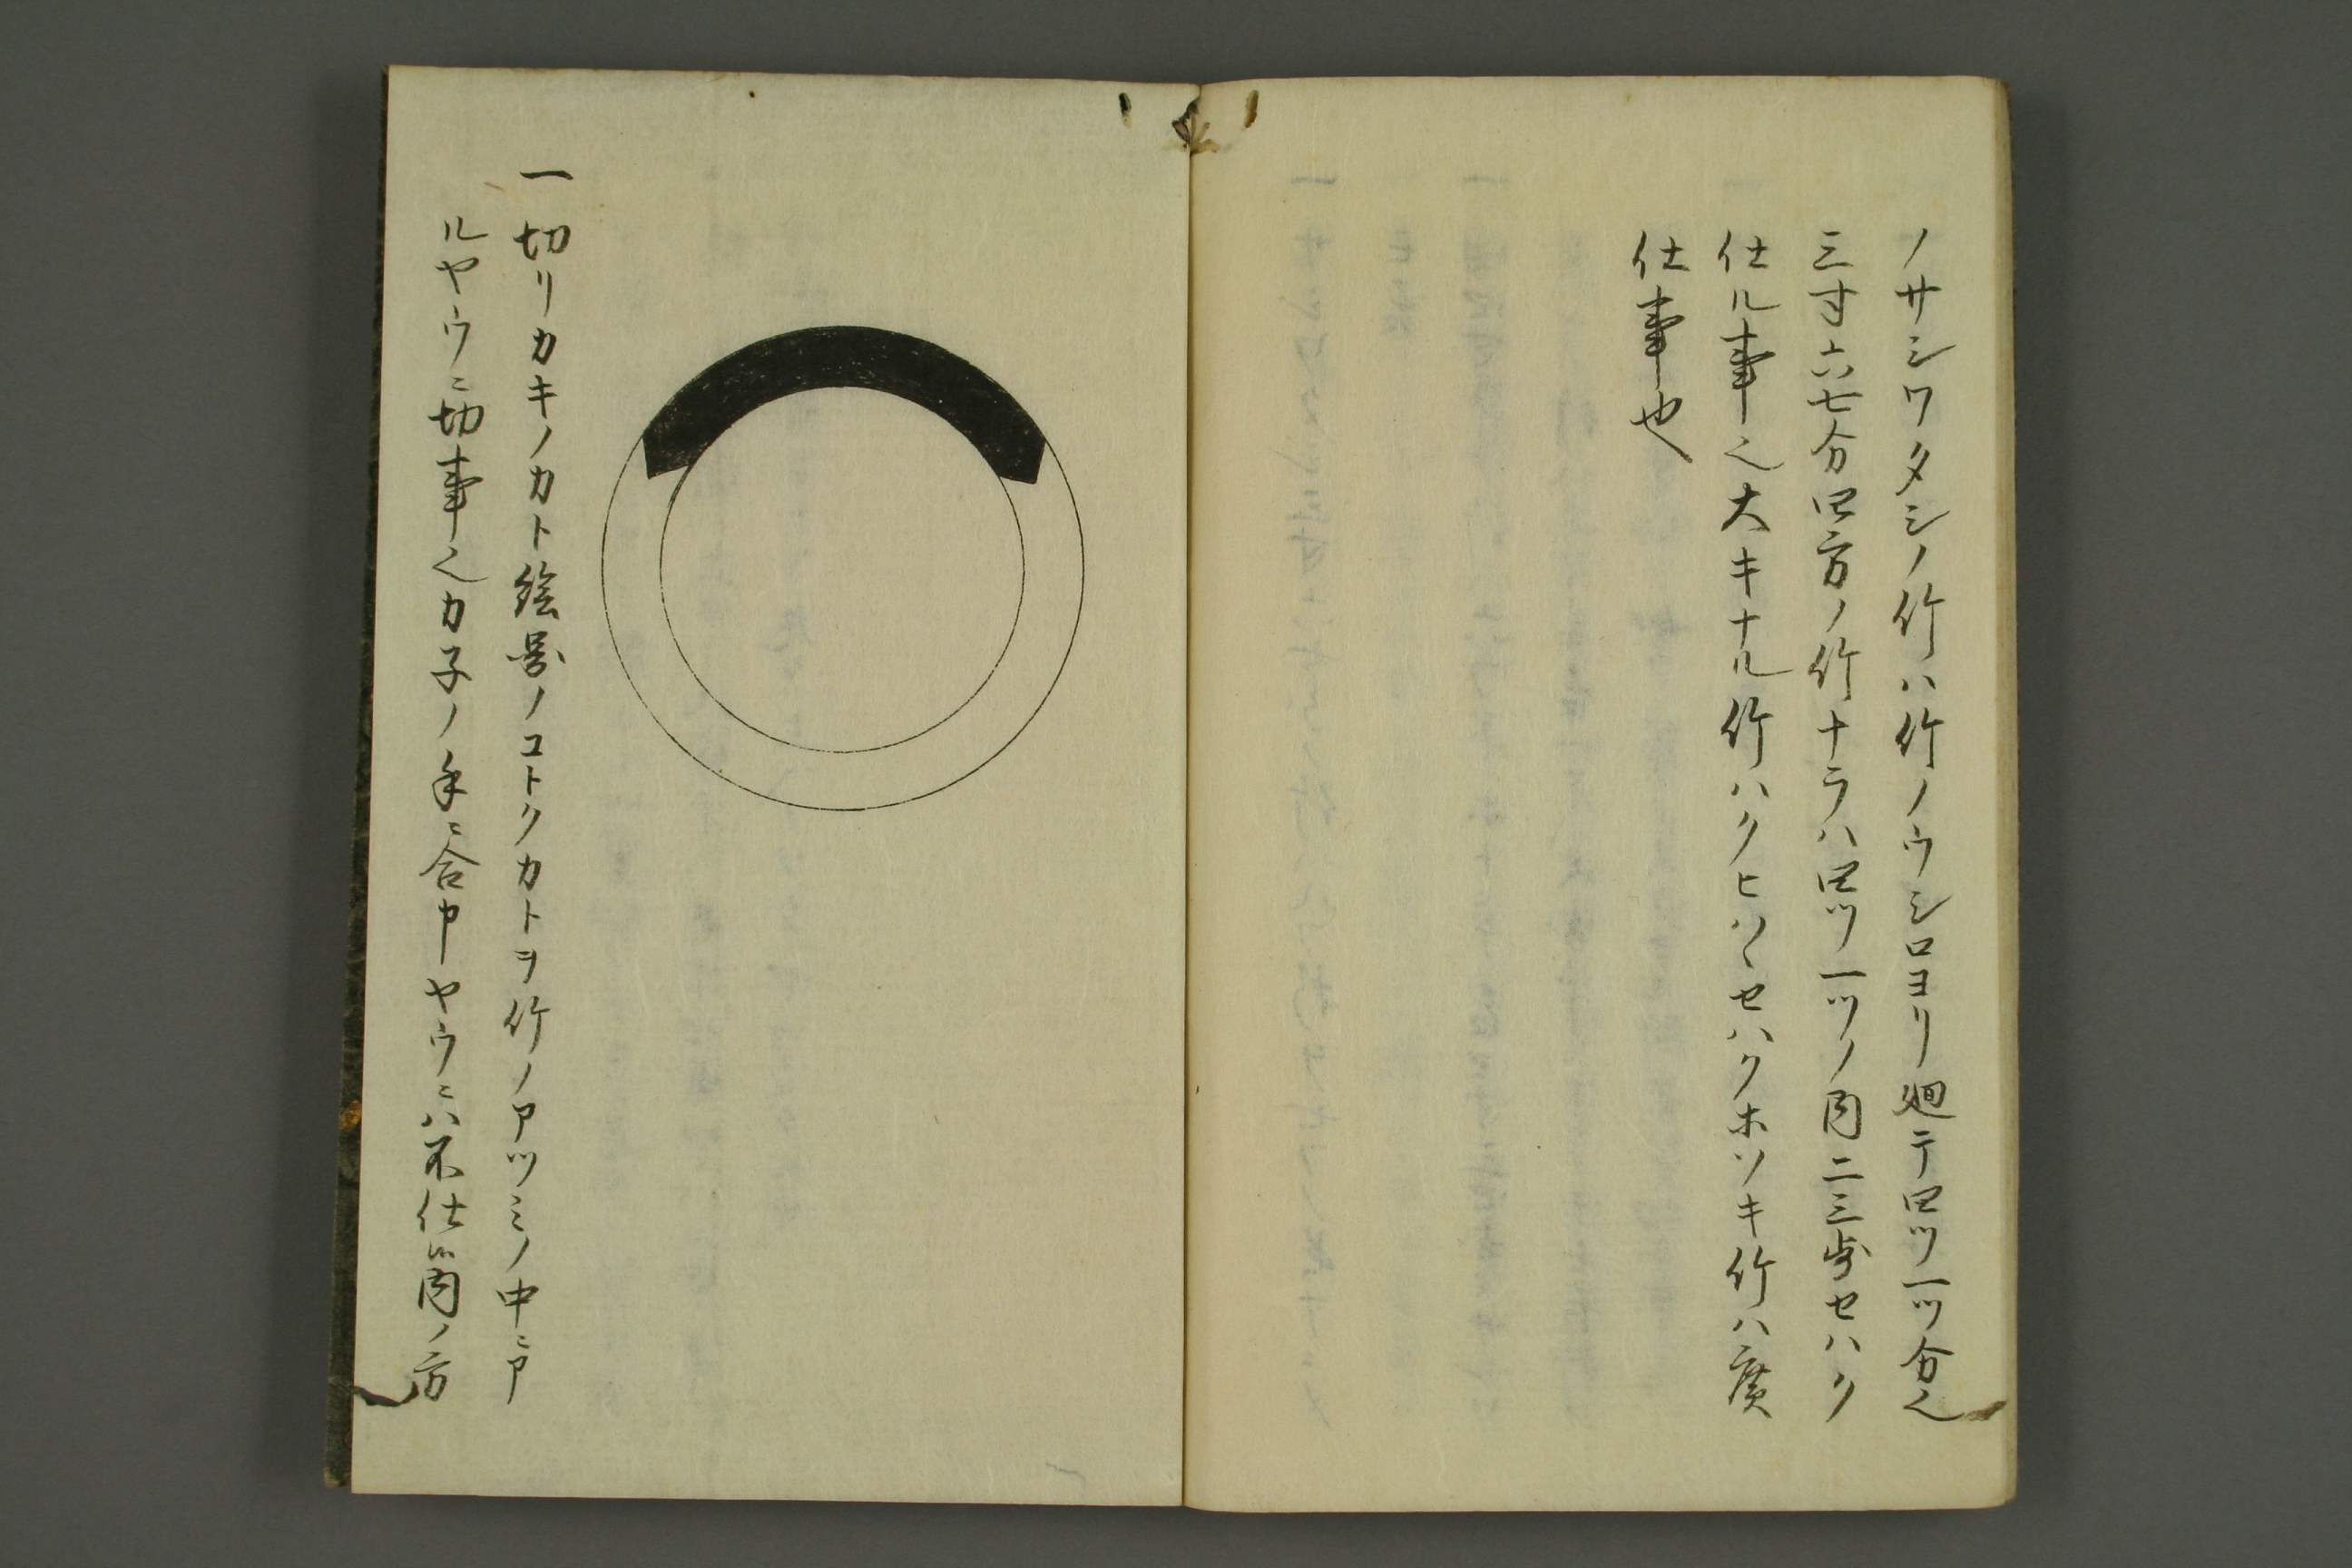 ノサシワタシノ竹ハ竹ノウシロヨリ廻テ四ツ一ツ分也
三寸六七分四方ノ竹ナラハ四ツ一ツノ内二三歩セハク
仕ル事也大キナル竹ハクヒツヽセハクホソキ竹ハ廣
仕事也
一切リカキノカト絵図ノコトクカトヲ竹ノアツミノ中ニア
ルヤウニ切事也カ子ノ手ニ合申ヤウニハ不仕筒ノ方